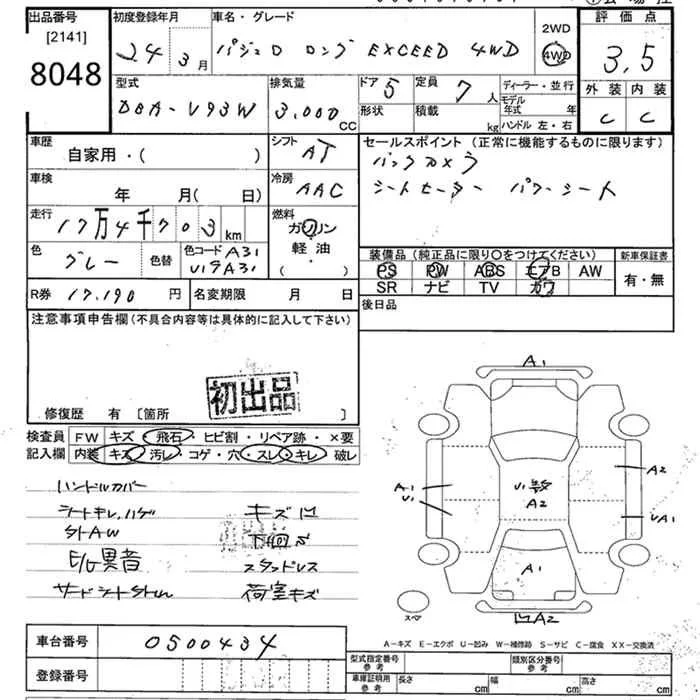 出品番号 初度登録年月 車名・グレード 2WD 評価点
[2141] 24 3月 パジェロ ロング EXCEED 4WD 4WD 3.5
8048
型式 排気量 ドア 5 定員 7人 ディーラー・並行 外装 内装
DBA-V93W 3,000 CC 形状 積載 kg モデル年式 年 C C
ハンドル 左・右
車歴 シフト セールスポイント (正常に機能するものに限ります)
自家用・( ) AT バックカメラ
車検 冷房 シートヒーター パワーシート
年 月( 日) AAC
走行 17万4千703km 燃料
ガソリン
軽・油
( ・ )
色 グレー 色替 色コード A31
U19A31
装備品 (純正品に限り○をつけてください) 新車保証書
PS PW ABS エアB AW 有・無
SR ナビ TV カワ
R券 17,190円 名変期限 月 日 後日品
注意事項申告欄(不具合内容等は具体的に記入して下さい)
初出品
修復歴 有 [箇所 ]
検査員 FW キズ・飛石・ヒビ割・リペア跡・×要
記入欄 内装 キズ・汚レ・コゲ・穴・スレ・キレ・破レ
ハンドルカバー
シートキレ,ハゲ キズ凹
StAW 下廻S
E/G異音 スタッドレス
サードシートStn 荷室キズ
A1
A1
U1
U1
A2
A2
UA1
A1
凹A2
スペア
A-キズ E-エクボ U-凹み W-補修跡 S-サビ C-腐食 XX-交換済
車台番号 0500434
登録番号
型式指定番号 参考 類別区分番号 参考
車庫証明用 参考 長さ cm 幅 cm 高さ cm